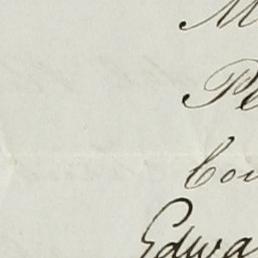 M
Pe
Cou
Edwa